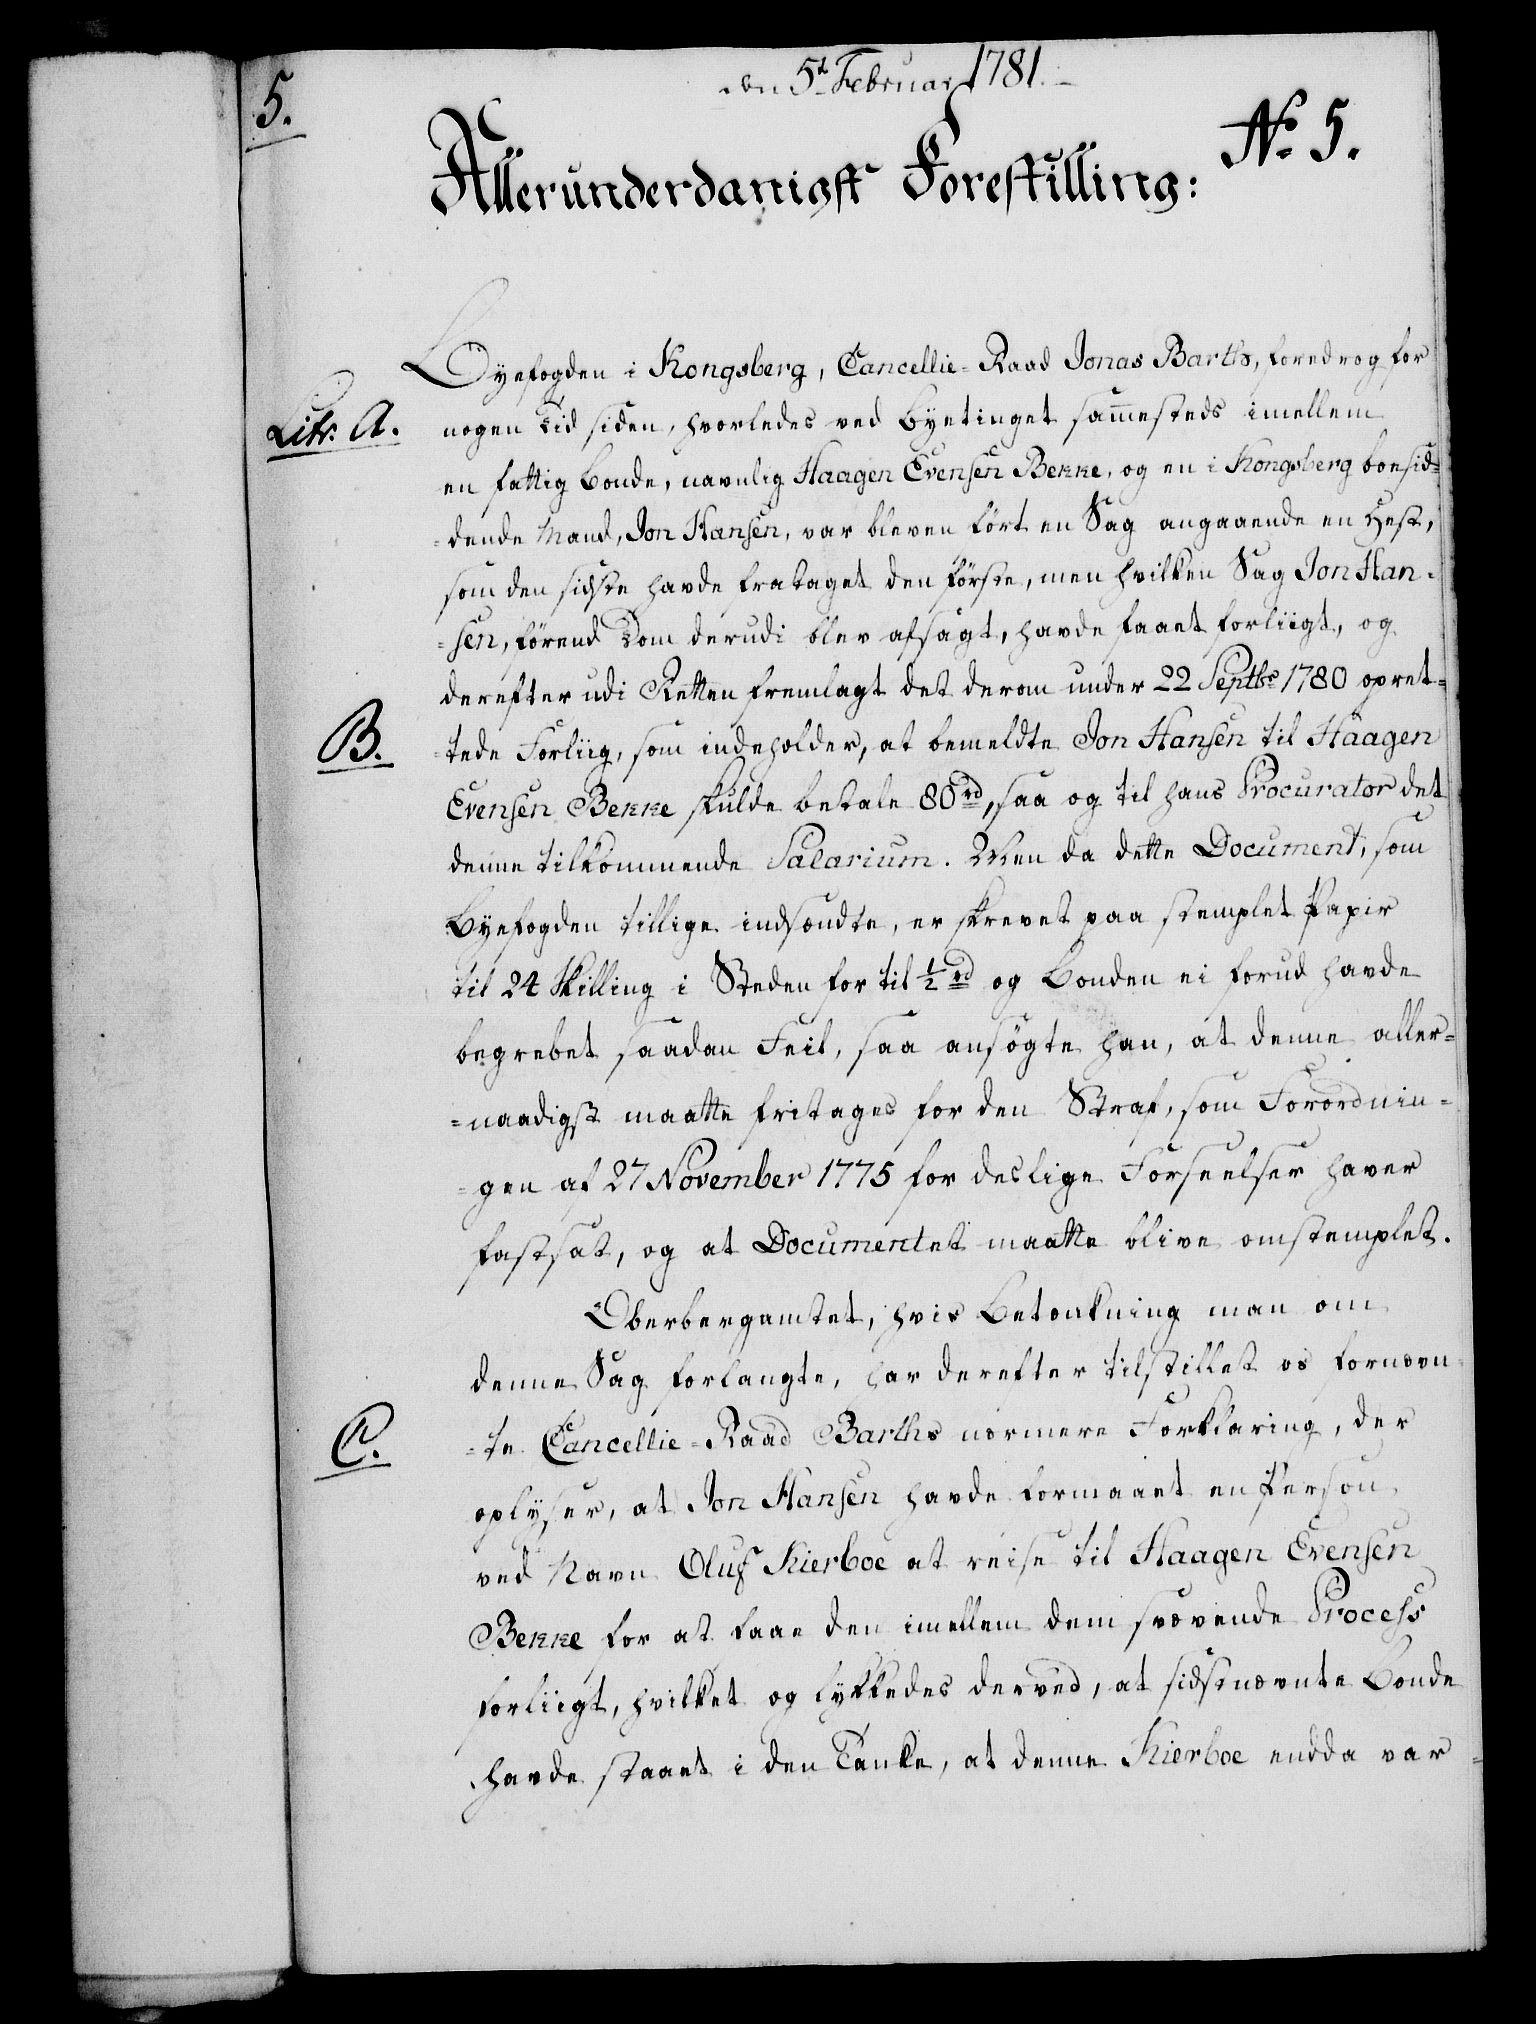 den 5t Februar 1781.
5.
No 5.
Allerunderdanigst Forestilling:
Byefogden i Kongsberg, Cancellie-Raad Jonas Barth, foredrog for
Litr. A.
nogen Tid siden, hvorledes ved Byetinget sam̄esteds imellem
en fattig Bonde, navnlig Haagen Evensen Bekke, og en i Kongsberg boesid-
-dende Mand, Jon Hansen, var bleven ført en Sag angaaende en Hest,
som den sidste havde frataget den første, men hvilken Sag Jon Han-
-sen, førend Dom derudi blev afsagt, havde faaet forliigt, og
derefter udi Retten fremlagt det derom under 22 Septbr 1780 opret-
B.
-tede Forliig, som indeholder, at bemeldte Jon Hansen til Haagen
Evensen Bekke skulde betale 80 rd, saa og til hans Procurator det
denne tilkommende Salarium. Men da dette Document, som
Byefogden tillige indsendte, er skrevet paa stemplet Papir
til 24 Skilling i Steden for til ½ rd og Bonden ei forud havde
begrebet saadan Feil, saa ansøgte han, at denne aller-
-naadigst maatte fritages for den Straf, som Forordnin-
-gen af 27 November 1775 for deslige Forseelser haver
fastsat, og at Documentet maatte blive omstemplet.
Oberbergamtet, hvis Betænkning man om
denne Sag forlangte, har derefter tilstillet os fornævn-
C.
-te Cancellie-Raad Barths nærmere Forklaring, der
oplyser, at Jon Hansen havde formaaet en Person
ved Navn Oluf Kierboe at reise til Haagen Evensen
Bekke for at faae den imellem dem svævende Process
forliigt, hvilket og lykkedes derved, at sidstnævnte Bonde
havde staaet i den Tanke, at denne Kierboe endda var-